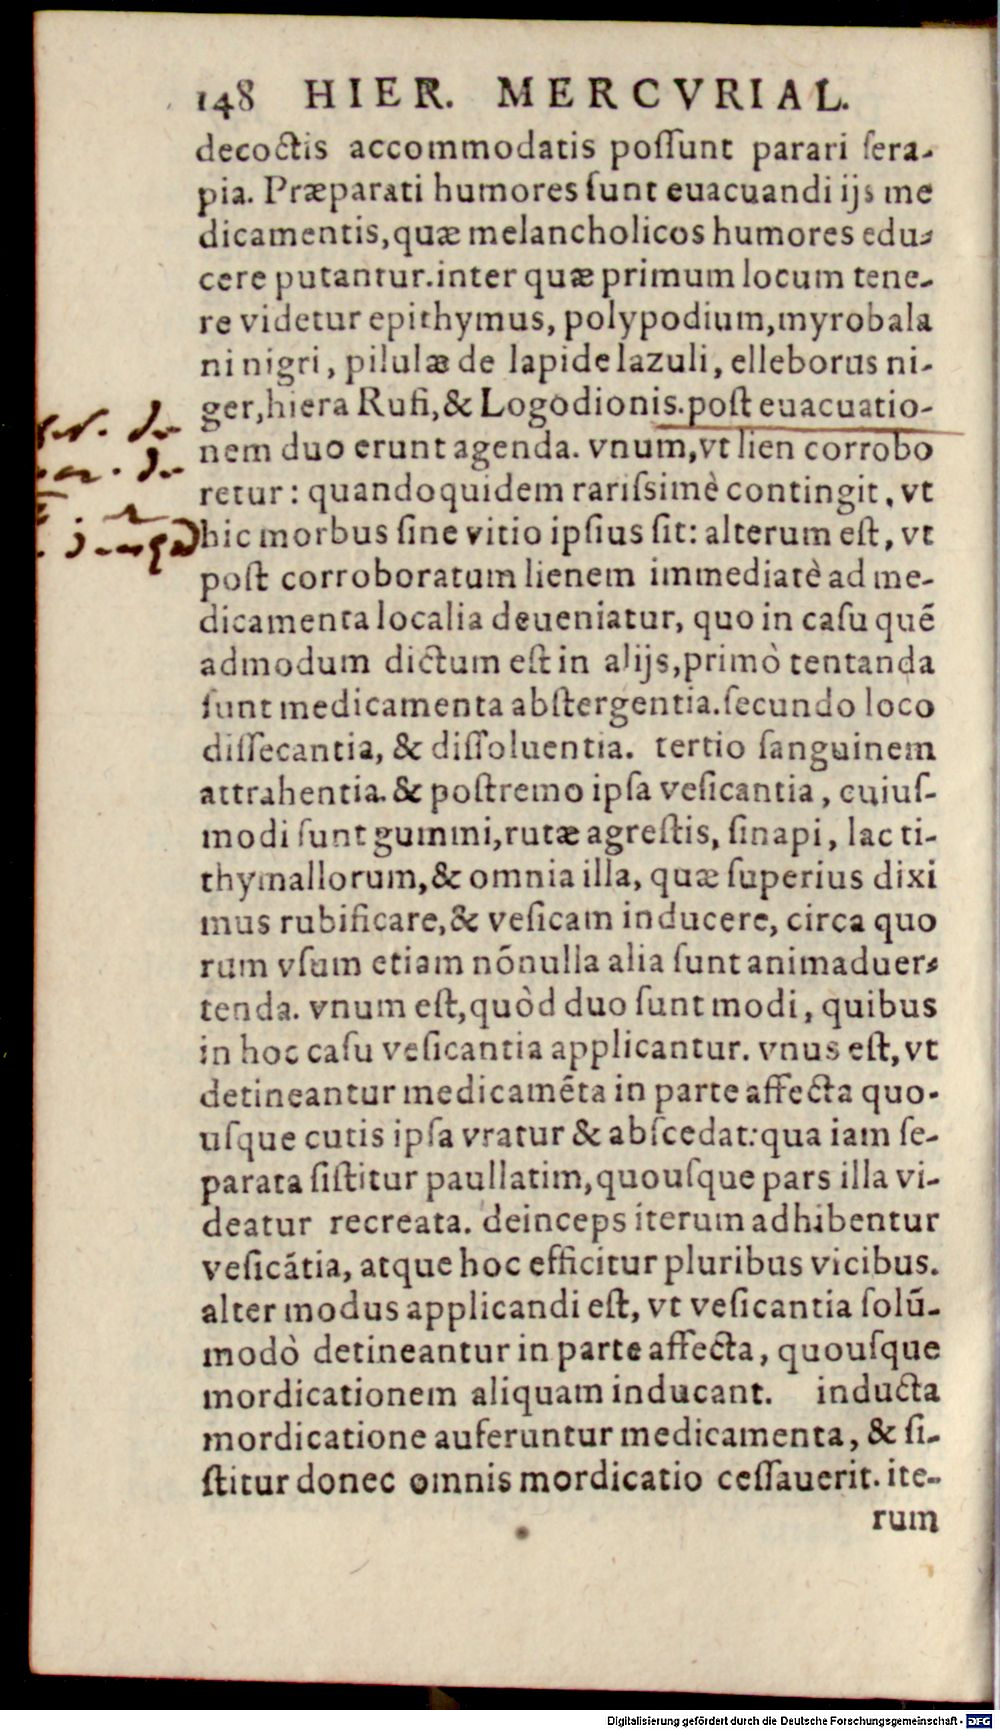 148 HIER. MERCVRIAL.
decoctis accommodatis poſſunt parari ſera-
pia. Præparati humores ſunt euacuandi ijs me
dicamentis, quæ melancholicos humores edu-
cere putantur. inter quæ primum locum tene-
re videtur epithymus, polypodium, myrobala
ni nigri, pilulæ de lapide lazuli, elleborus ni-
ger, hiera Rufi, & Logodionis. poſt euacuatio-
nem duo erunt agenda. vnum, vt lien corrobo
retur: quandoquidem rariſsimè contingit, vt
hic morbus ſine vitio ipſius ſit: alterum eſt, vt
poſt corroboratum lienem immediatè ad me-
dicamenta localia deueniatur, quo in caſu quẽ
admodum dictum eſt in alijs, primò tentanda
ſunt medicamenta abſtergentia. ſecundo loco
diſſecantia, & diſſoluentia. tertio ſanguinem
attrahentia. & poſtremo ipſa veſicantia, cuiuſ-
modi ſunt gummi, rutæ agreſtis, ſinapi, lac ti-
thymallorum, & omnia illa, quæ ſuperius dixi
mus rubificare, & veſicam inducere, circa quo
rum vſum etiam nõnulla alia ſunt animaduer-
tenda. vnum eſt, quòd duo ſunt modi, quibus
in hoc caſu veſicantia applicantur. vnus eſt, vt
detineantur medicamẽta in parte affecta quo-
uſque cutis ipſa vratur & abſcedat: qua iam ſe-
parata ſiſtitur paullatim, quouſque pars illa vi-
deatur recreata. deinceps iterum adhibentur
veſicãtia, atque hoc efficitur pluribus vicibus.
alter modus applicandi eſt, vt veſicantia ſolũ-
modò detineantur in parte affecta, quouſque
mordicationem aliquam inducant. inducta
mordicatione auferuntur medicamenta, & ſi-
ſtitur donec omnis mordicatio ceſſauerit. ite-
rum
Digitalisierung gefördert durch die Deutsche Forschungsgemeinschaft - DFG